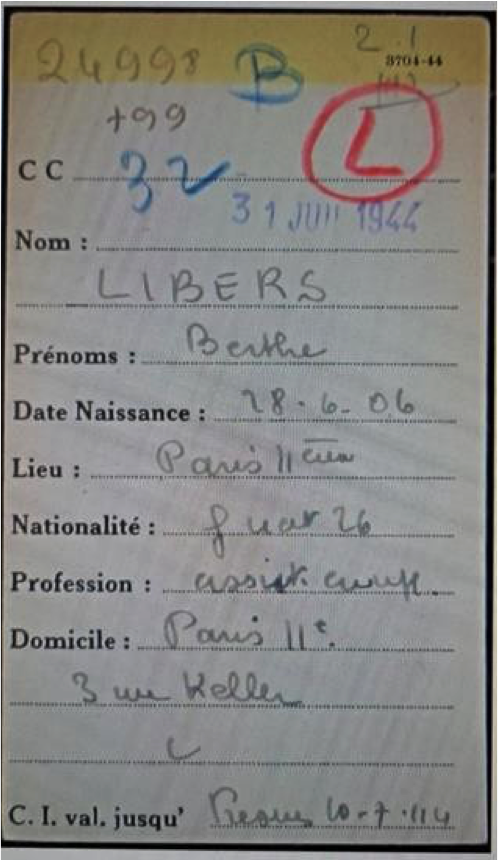 24998 B 2.1
3704-44
+99 L
CC 32
31 JUIL 1944
Nom :
LIBERS
Prénoms : Berthe
Date Naissance : 28.6.06
Lieu : Paris 11ème
Nationalité : f nat 26
Profession : assist.
Domicile : Paris 11e.
3 rue Keller
C. I. val. jusqu'